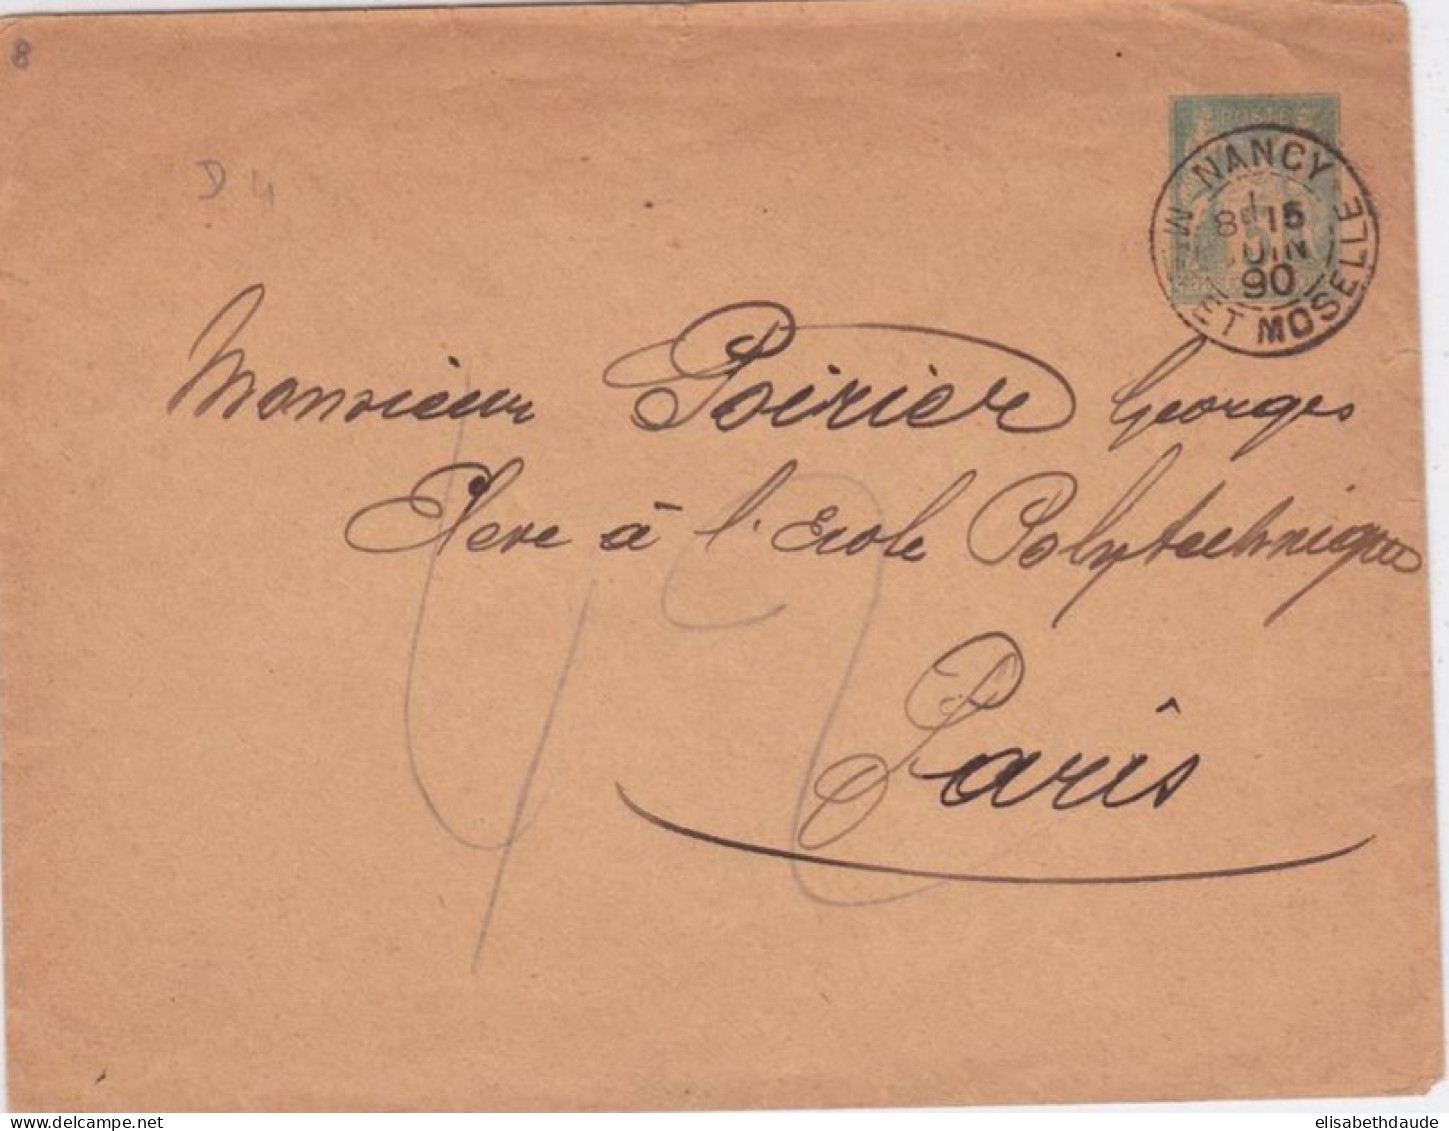 8
D 4
POSTE
NANCY
8E 15
JUIN
90
M. ET MOSELLE
Monsieur Poirier Georges
Eleve à l'Ecole Polytechnique
Paris
42
elisabethdaude